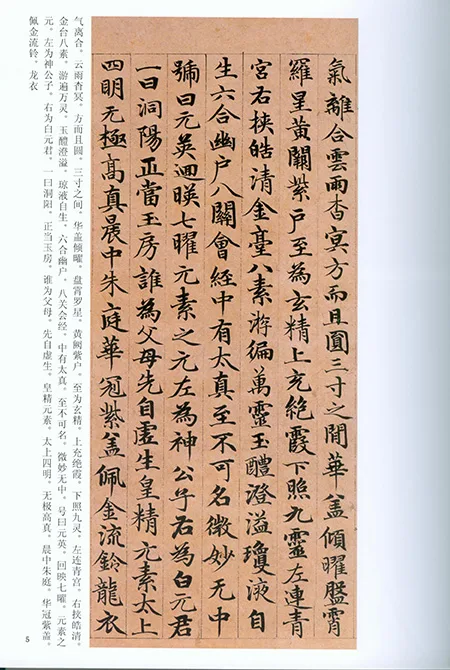 氣離合雲雨杳冥方而且圓三寸之間華盖傾曜盤霄
羅星黃闕紫戶至為玄精上充絕霞下照九靈左連青
宮右挾皓清金臺八素游徧萬靈玉醴澄溢瓊液自
生六合幽戶八關會經中有太真至不可名微妙无中
號曰元英迴暎七曜元素之元左為神公子右為白元君
一曰洞陽正當玉房誰為父母先自虛生皇精元素太上
四明无極高真晨中朱庭華冠紫盖佩金流鈴龍衣
气离合。云雨杳冥。方而且圆。三寸之间。华盖倾曜。盘霄罗星。黄阙紫户。至为玄精。上充绝霞。下照九灵。左连青宫。右挟皓清。
金台八素。游遍万灵。玉醴澄溢。琼液自生。六合幽户。八关会经。中有太真。至不可名。微妙无中。号曰元英。回映七曜。元素之
元。左为神公子。右为白元君。一曰洞阳。正当玉房。谁为父母。先自虚生。皇精元素。太上四明。无极高真。晨中朱庭。华冠紫盖。
佩金流铃。龙衣
5